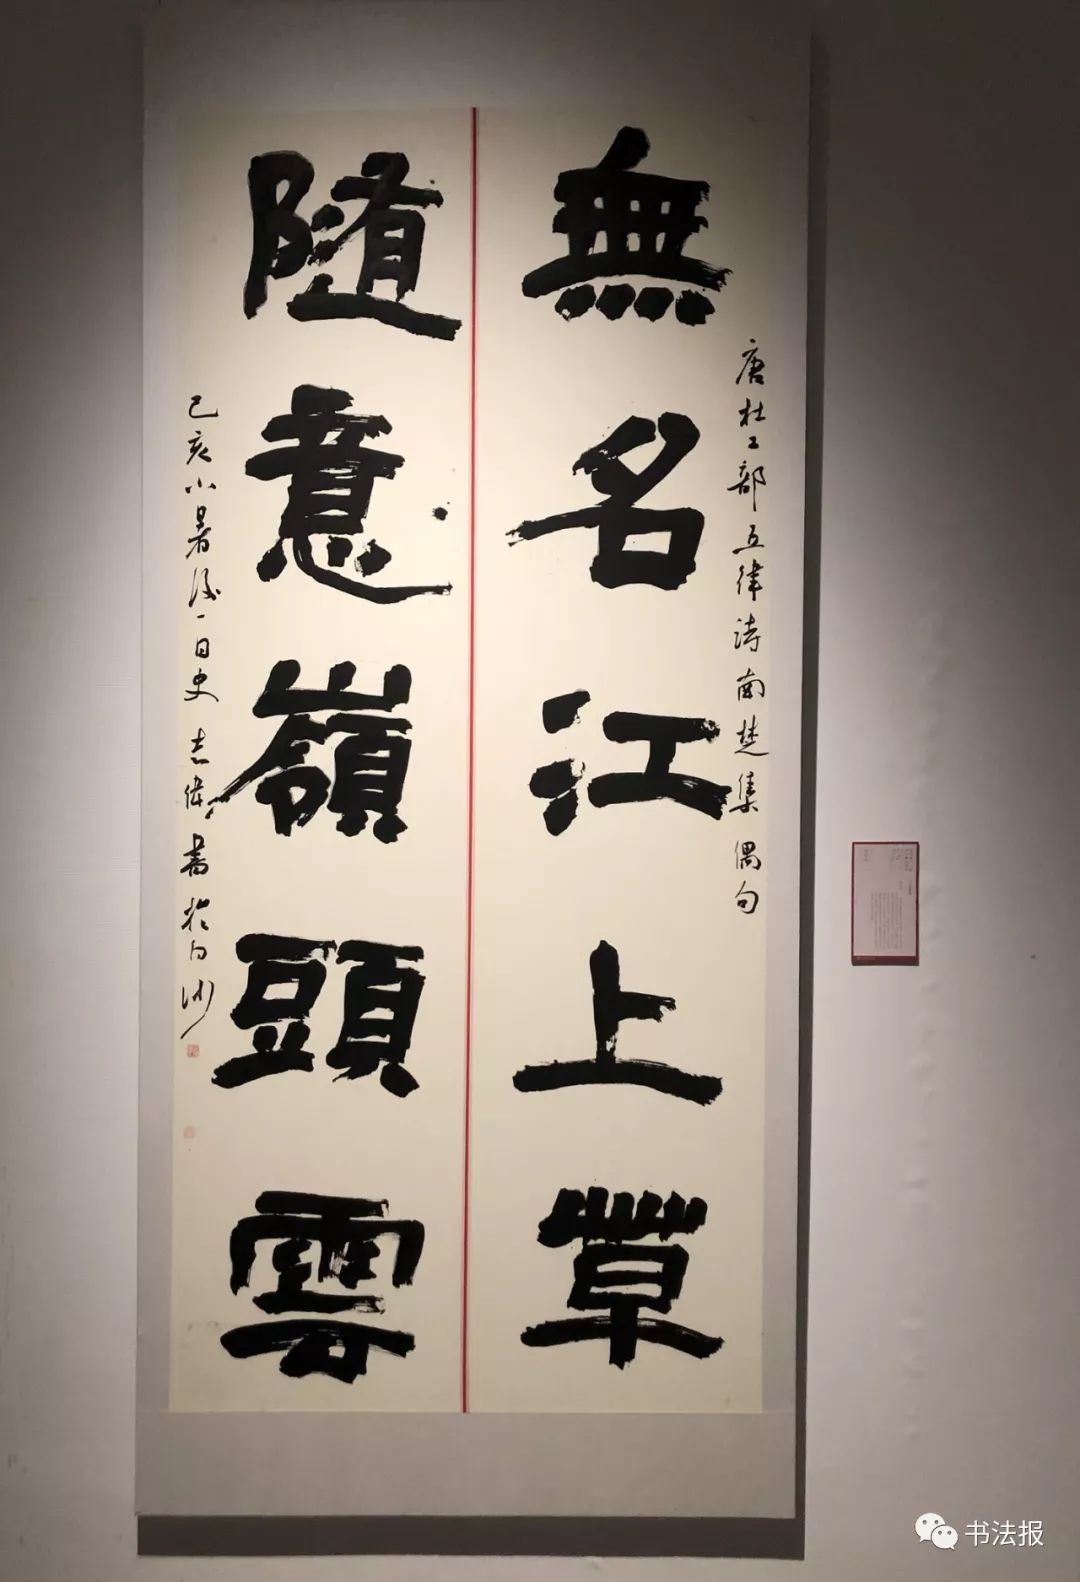 無名江上草
隨意嶺頭雲
唐杜工部五律诗南楚集偶句
己亥小暑後一日史志偉書於白沙
书法报